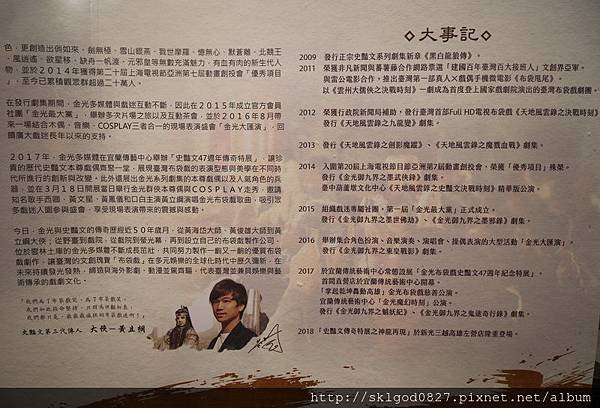 色，更創造出俏如來、劍無極、雪山銀燕、我世摩羅、憶無心、默蒼離、北競王
、風逍遙、欲星移、缺舟一帆渡、元邪皇等無數充滿魅力，有血有肉的新生代人
物，並於2014年獲得第二十屆上海電視節亞洲第七屆動畫創投會「優秀項目
」，至今已累積觀眾群超過二十萬人。
在發行劇集期間，金光多媒體與戲迷互動不斷，因此在2015年成立官方會員
社團「金光最大黨」，舉辦多次片場之旅以及互動茶會，並於2016年8月帶
來一場結合木偶、音樂、COSPLAY三者合一的現場表演盛會「金光大匯演」，回
饋廣大戲迷長年以來的支持。
2017年，金光多媒體在宜蘭傳藝中心舉辦「史艷文47週年傳奇特展」，讓珍
貴的歷代史艷文本尊戲偶齊聚一堂，展現臺灣布袋戲的表演型態與美學在不同時
代所進行的創新與改變。此外還展出金光系列劇集的本尊戲偶以及人氣角色的兵
器，並在3月18日開展當日舉行金光群俠本尊戲偶與COSPLAY走秀，邀請
知名歌手西卿、黃文星、黃鳳儀和口白主演黃立綱演唱金光布袋戲歌曲，吸引眾
多戲迷入園參與盛會，享受現場表演帶來的震撼與感動。
今日，金光與史艷文的傳奇歷經近50年歲月，從黃海岱大師、黃俊雄大師到黃
立綱大俠；從野臺到戲院，從戲院到螢光幕，再到設立自己的布袋戲製作公司，
位於雲林土庫的金光多媒體不斷成長茁壯，共同努力製作一齣又一齣的優質布袋
戲劇作，讓臺灣的文創瑰寶「布袋戲」在多元娛樂的全球化時代中歷久彌新，在
未來持續發光發熱，締造與海外影劇、動漫並駕齊驅，代表臺灣並兼具娛樂與藝
術傳承的戲劇文化。
史艷文第三代傳人 大俠─黃立綱
◇大事記◇
2009 發行正宗史艷文系列劇集新章《黑白龍狼傳》。
2011 榮獲非凡新聞與蕃薯藤合作網路票選「建國百年臺灣百大接班人」文創界亞軍。
與雷公電影合作，推出臺灣第一部真人X戲偶手機微電影《布袋甩尾》。
以《雲州大儒俠之決戰時刻》一劇成為首度登上國家戲劇院演出的臺灣布袋戲劇團。
2012 榮獲行政院新聞局補助，發行臺灣首部Full HD電視布袋戲《天地風雲錄之決戰時刻》
發行《天地風雲錄之九龍變》劇集。
2013 發行《天地風雲錄之劍影魔蹤》、《天地風雲錄之魔戮血戰》劇集。
2014 入圍第20屆上海電視節目節亞洲第7屆動畫創投會，榮獲「優秀項目」殊榮。
發行《金光御九界之墨武俠鋒》劇集。
臺中葫蘆墩文化中心《天地風雲錄之史艷文決戰時刻》精華版公演。
2015 組織戲迷專屬社團，第一屆「金光最大黨」正式成立。
發行《金光御九界之墨世佛劫》、《金光御九界之墨邪錄》劇集。
2016 舉辦集合角色扮演、音樂演奏、演唱會、操偶表演的大型活動「金光大匯演」。
發行《金光御九界之東皇戰影》劇集。
2017 於宜蘭傳統藝術中心常態設展「金光布袋戲史艷文47週年紀念特展」。
首間直營店於宜蘭傳統藝術中心開幕。
「掌起乾坤轟動高雄」金光布袋戲慈善公演。
宜蘭傳統藝術中心「金光魔幻時刻」公演。
發行《金光御九界之魆妖紀》、《金光御九界之鬼途奇行錄》劇集。
2018 「史艷文傳奇特展之神龍再現」於新光三越高雄左營店隆重登場。
http://sklgod0827.pixnet.net/album